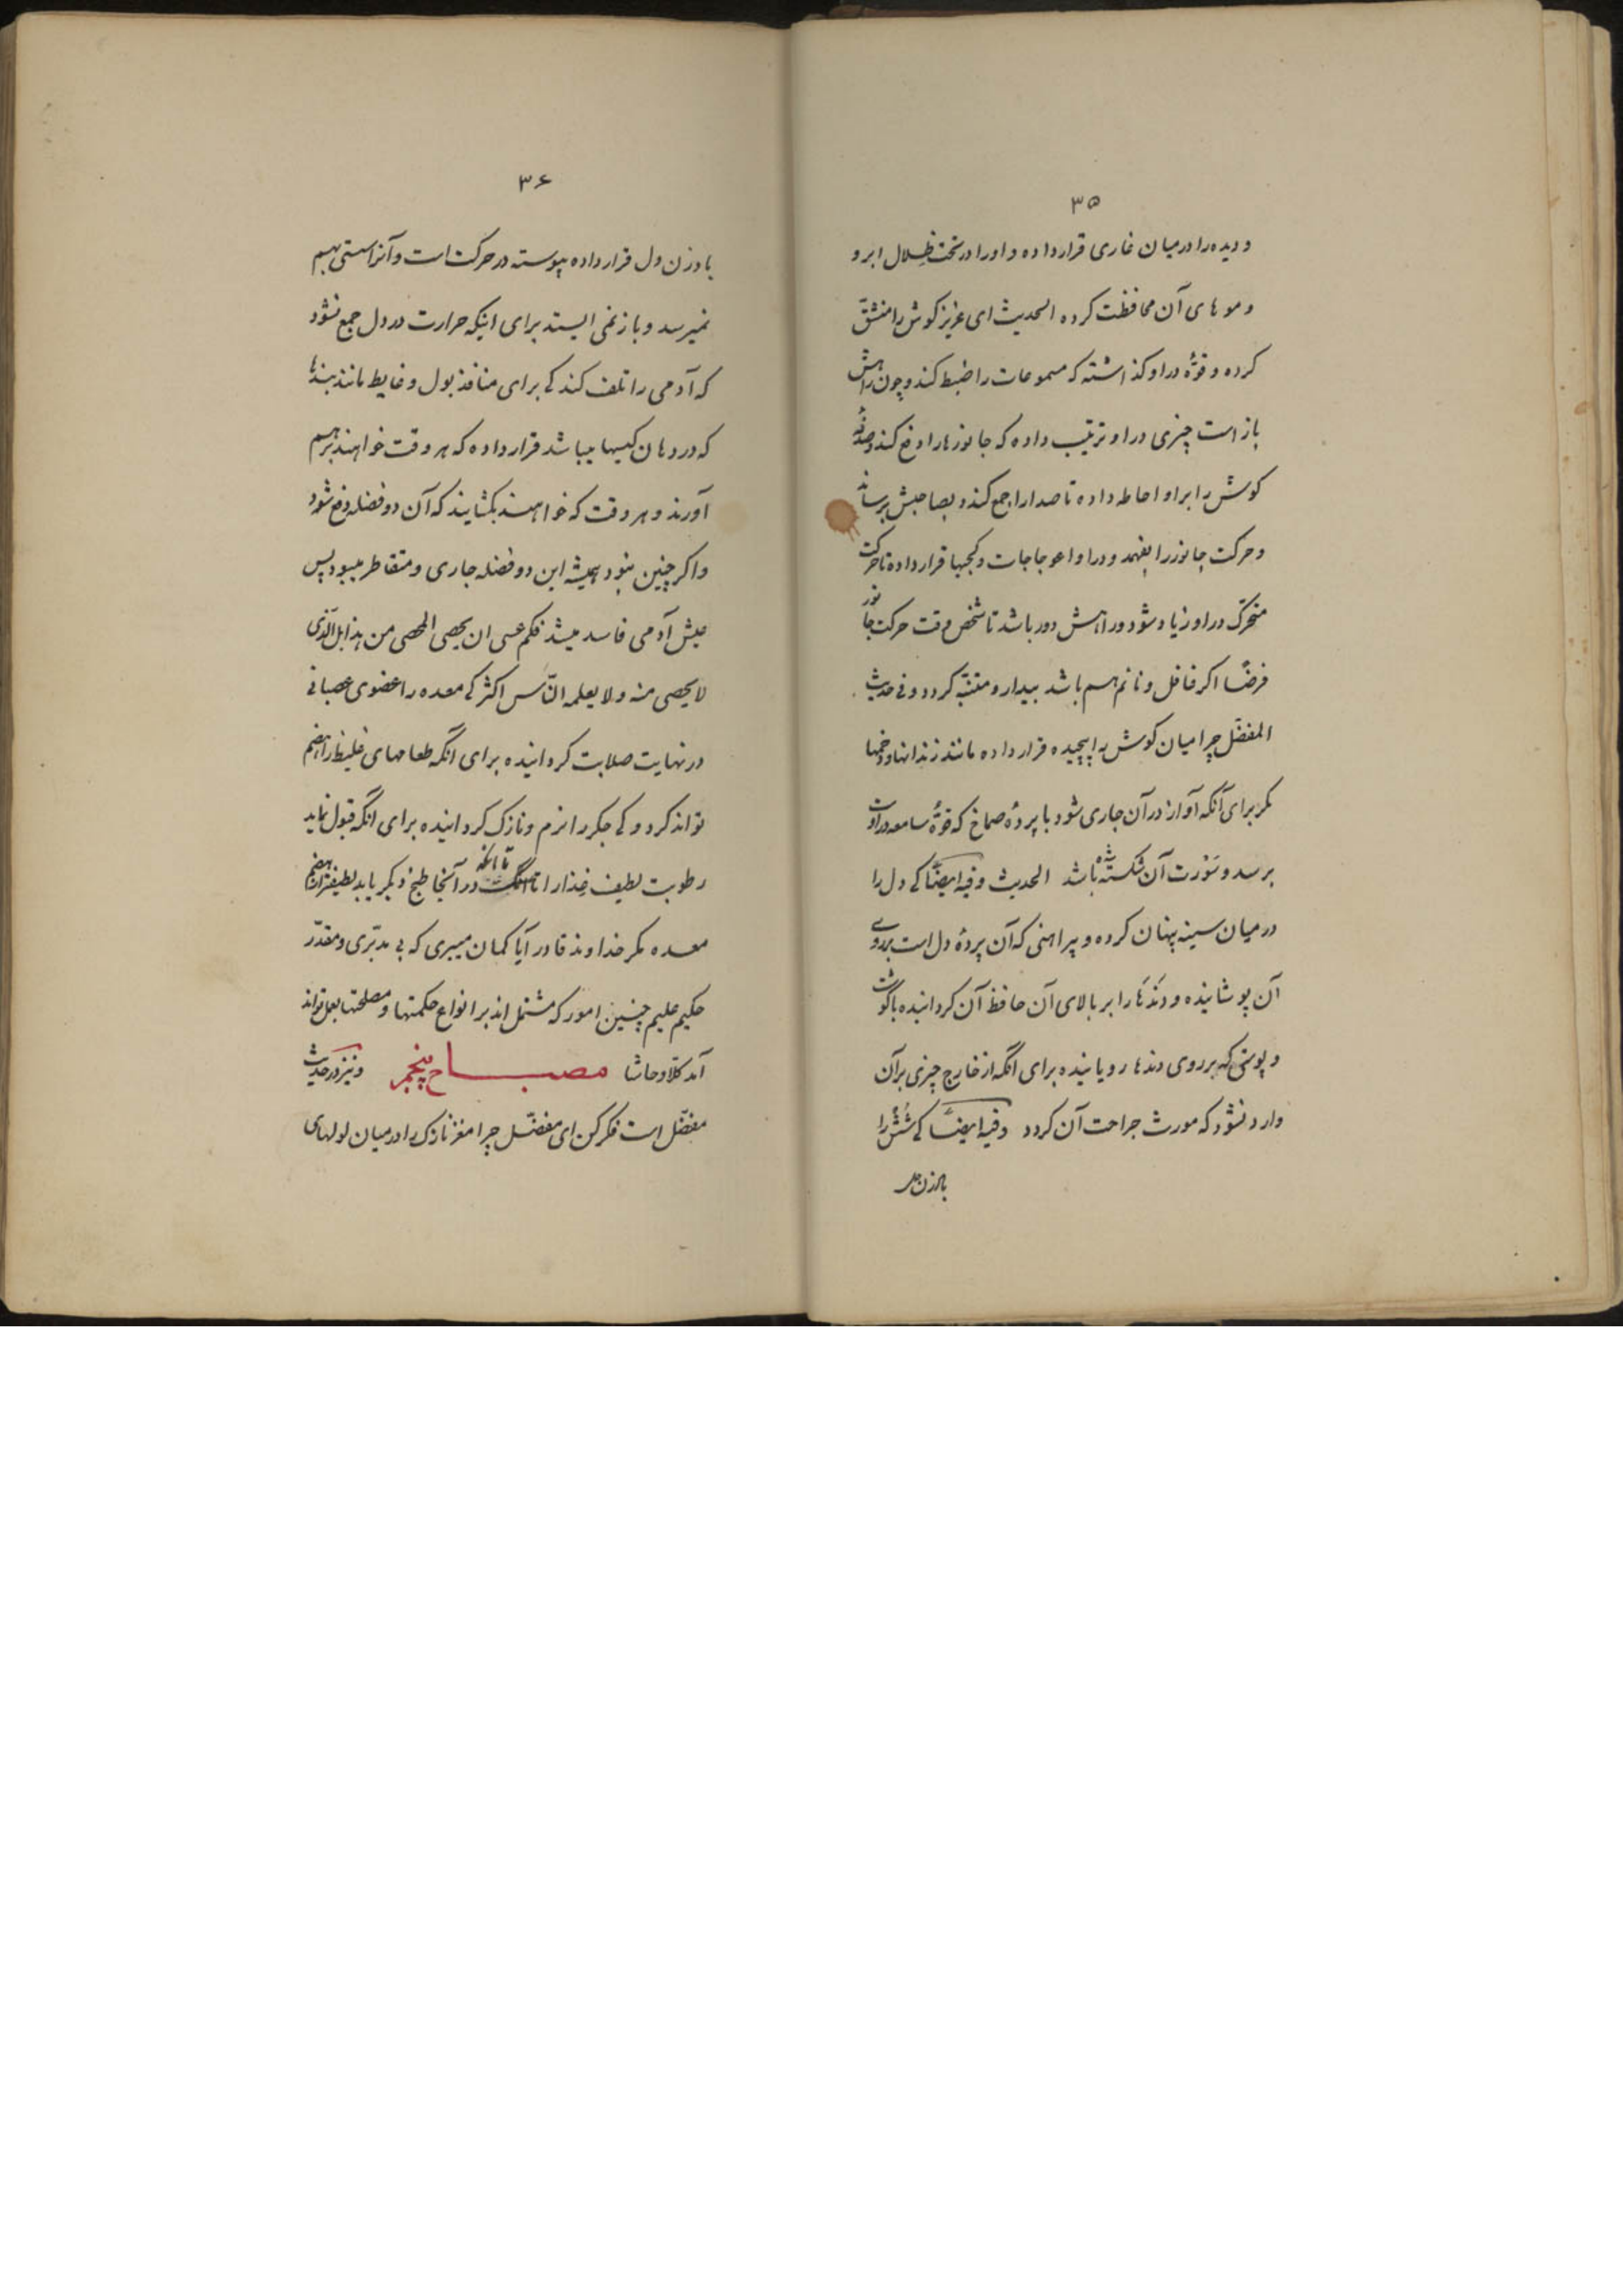 ۳۵
و دیده را در میان غاری قرار داده و او را در تحت ظلال ابرو
و موهای آن محافظت کرده الحدیث ای عزیز کوش را منشقّ
کرده و قوّهٔ در او کذاشته که مسموعات را ضبط کند و چون راهش
باز است چیزی در او ترتیب داده که جانورها را دفع کند و صدفهٔ
کوش را بر او احاطه داده تا صدا را جمع کند و بصاحبش برساند
و حرکت جانور را بفهمد و در او اعوجاجات و کجیها قرار داده تا حرکت
متحرّک در او زیاد شود و راهش دور باشد تا شخص وقت حرکت جانور
فرضًا اکر غافل و نائم هم باشد بیدار و متنبّه کردد و فی حدیث
المفضّل چرا میان کوش را پیچیده قرار داده مانند زندانها و خمها
مکر برای آنکه آواز در آن جاری شود تا پردهٔ صماخ که قوّهٔ سامعه در اوست
برسد و سَوْرت آن شکسته شده باشد الحدیث و فیه ایضًا کی دل را
در میان سینه پنهان کرده و پیراهنی که آن پردهٔ دل است بر روی
آن پوشانیده و دَنْدَها را بر بالای آن حافظ آن کردانیده با کوشت
و پوستی که بر روی دندها رویانیده برای آنکه از خارج چیزی بر آن
وارد نشود که مورث جراحت آن کردد و فیه ایضًا کی شُشْ را
بادزن دل
۳۶
بادزن دل قرار داده پیوسته در حرکت است و آنرا سستی بهم
نمیرسد و باز نمی ایستد برای اینکه حرارت در دل جمع نشود
که آدمی را تلف کند کی برای منافذ بول و غایط مانند بندها
که در دهان کیسها میباشد قرار داده که هر وقت خواهند بر هم
آورند و هر وقت که خواهند بکشایند که آن دو فضله دفع شود
و اکر چنین نبود همیشه این دو فضله جاری و متقاطر میبود پس
عیش آدمی فاسد میشد فکم عسی ان یحصی المحصی من هذا بل الّذی
لا یحصی منه و لا یعلمه النّاس اکثر کی معده را عضوی عصبانی
در نهایت صلابت کردانیده برای آنکه طعامهای غلیظ را هضم
تواند کرد و کی جکر را نرم و نازک کردانیده برای آنکه قبول نماید
رطوبت لطیف غذا را تا آنکه در آنجا طبخ دیکر یابد لطیفتر از هضم
معده مکر خداوند قادر آیا کمان میبری که بی مدبّری و مقدّر
حکیم علیم چنین امور که مشتمل اند بر انواع حکمتها و مصلحتها بعمل تواند
آمد کلّا و حاشا مصباح پنجم و نیز در حدیث
مفضّل است فکر کن ای مفضّل چرا مغز نازک را در میان لولهای